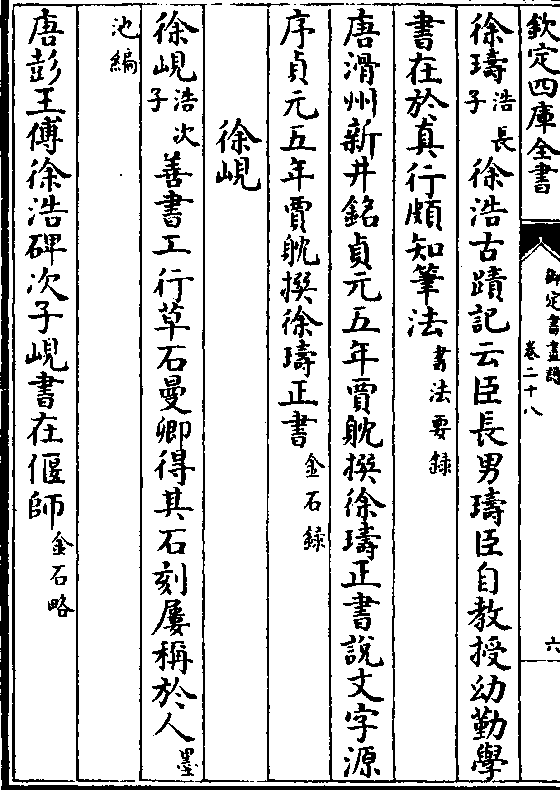 欽定四庫全書
御定書畫譜
卷二十八
六
徐璹浩長子徐浩古蹟記云臣長男璹臣自教授幼勤學
書在於真行頗知筆法書法要録
唐滑州新井銘貞元五年賈躭撰徐璹正書說文字源
序貞元五年賈躭撰徐璹正書金石録
徐峴
徐峴浩次子善書工行草石曼卿得其石刻屢稱於人墨
池編
唐彭王傅徐浩碑次子峴書在偃師金石略